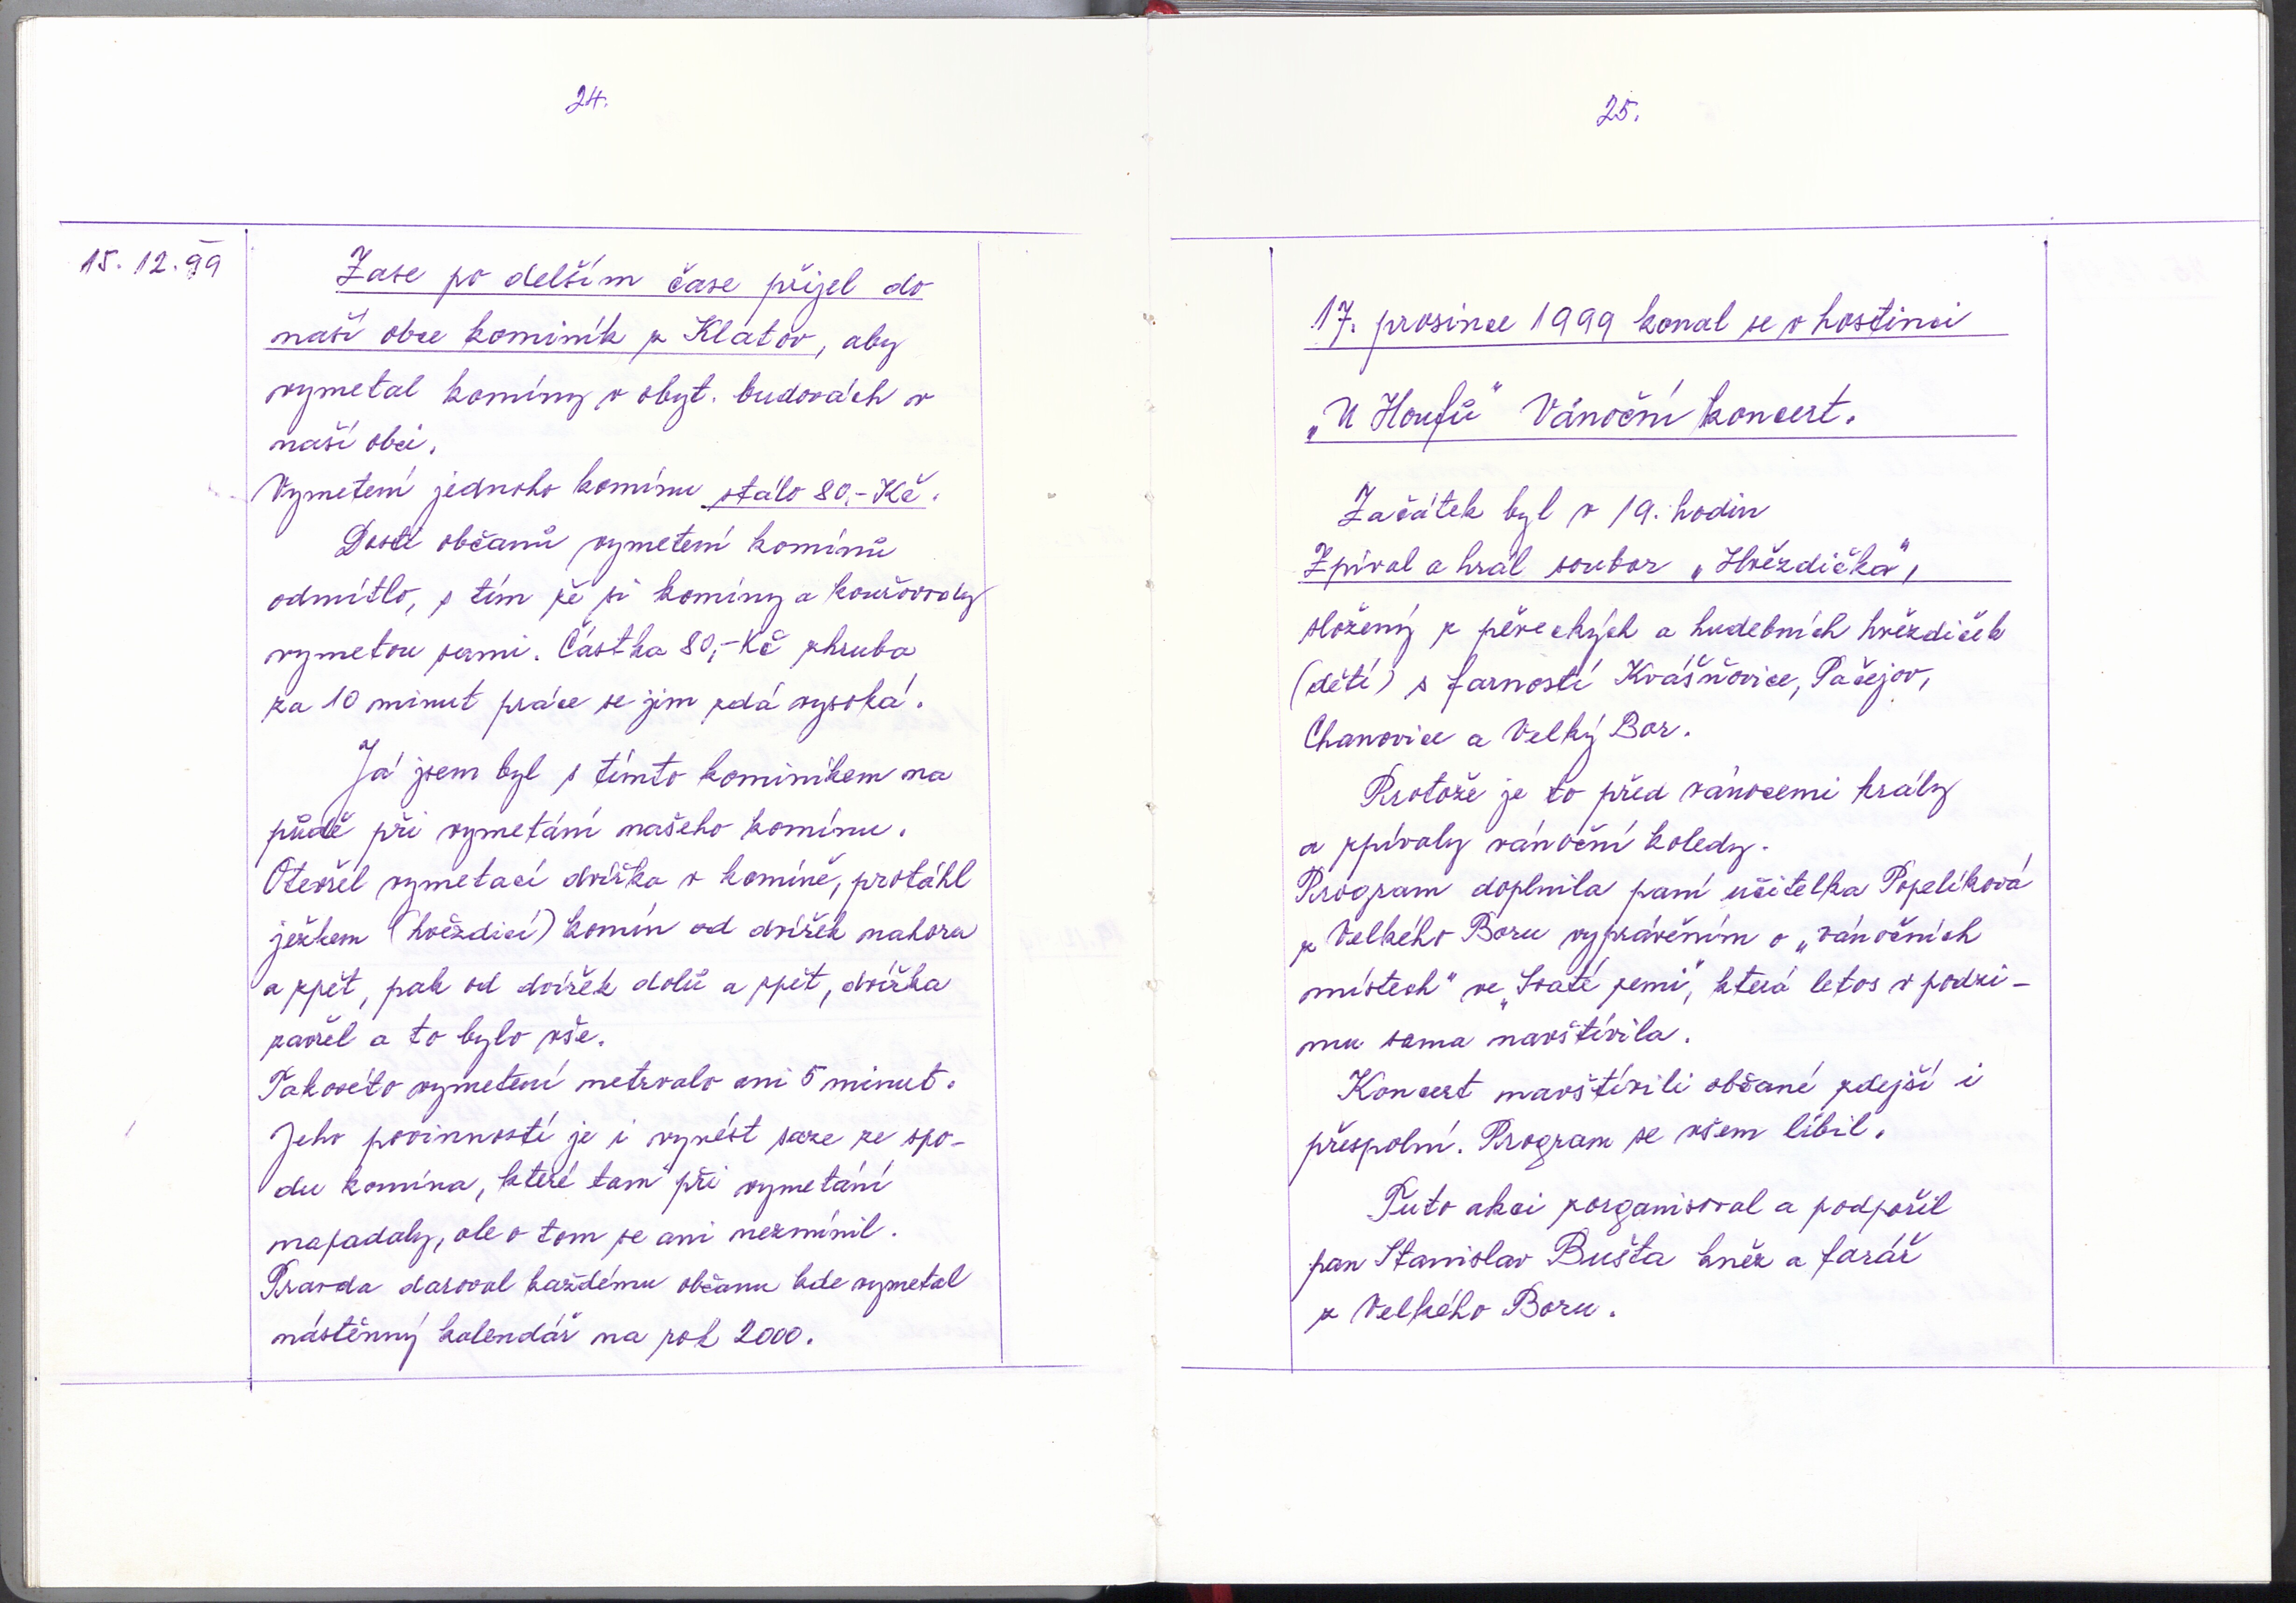 24.
15. 12. 99
Zase po delším čase přijel do
naší obce kominík z Klatov, aby
vymetal komíny v obyt. budovách v
naší obci.
Vymetení jednoho komínu stálo 80,- Kč.
Dosti občanů vymetení komínů
odmítlo, s tím že si komíny a kouřovody
vymetou sami. Částka 80,- Kč zhruba
za 10 minut práce se jim zdá vysoká.
Já jsem byl s tímto kominíkem na
půdě při vymetání našeho komínu.
Otevřel vymetací dvířka v komíně, protáhl
ježkem (hvězdicí) komín od dvířek nahoru
a zpět, pak od dvířek dolů a zpět, dvířka
zavřel a to bylo vše.
Takovéto vymetení netrvalo ani 5 minut.
Jeho povinností je i vynést saze ze spo-
du komína, které tam při vymetání
napadaly, ale o tom se ani nezmínil.
Pravda daroval každému občanu kde vymetal
nástěnný kalendář na rok 2000.
25.
17. prosince 1999 konal se v hostinci
„U Houfů" Vánoční koncert.
Začátek byl v 19. hodin
Zpíval a hrál soubor „Hvězdička",
složený z pěveckých a hudebních hvězdiček
(dětí) s farností Kvášňovice, Pačejov,
Chanovice a Velký Bor.
Protože je to před vánocemi hrály
a zpívaly vánoční koledy.
Program doplnila paní učitelka Popelíková
z Velkého Boru vyprávěním o „vánočních
místech" ve „Svaté zemi", která letos v podzi-
mu sama navštívila.
Koncert navštívili občané zdejší i
přespolní. Program se všem líbil.
Tuto akci zorganisoval a podpořil
pan Stanislav Bušta kněz a farář
z Velkého Boru.